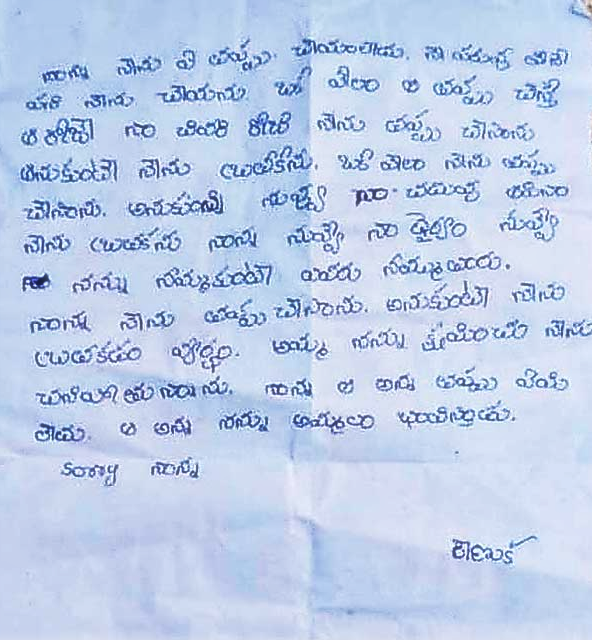 నాన్న నేను ఏ తప్పు చేయలేదు. నీ పరువు తీసే
పని నేను చేయను. ఒక వేల ఆ తప్పు చేస్తే
ఆ రోజే నా చివరి రోజు నేను తప్పు చేసాను
అనుకుంటే నేను బ్రతకను. ఒక వేల నేను తప్పు
చేసాను. అనుకుంటే నువ్వే నా
నేను బ్రతకను నాన్న నువ్వే నా ధైర్యం నువ్వే
నన్ను నమ్మకుంటే ఎవరు నమ్మతారు.
నాన్న నేను తప్పు చేసాను. అనుకుంటే నేను
బ్రతకడం వ్యర్థం. అమ్మ నన్ను క్షమించు నేను
చనిపోతున్నాను. నాన్న ఆ అన్న తప్పు చేయ
లేదు. ఆ అన్న నన్ను అమ్మలా భావిస్తాడు.
sorry నాన్న
రేణుక